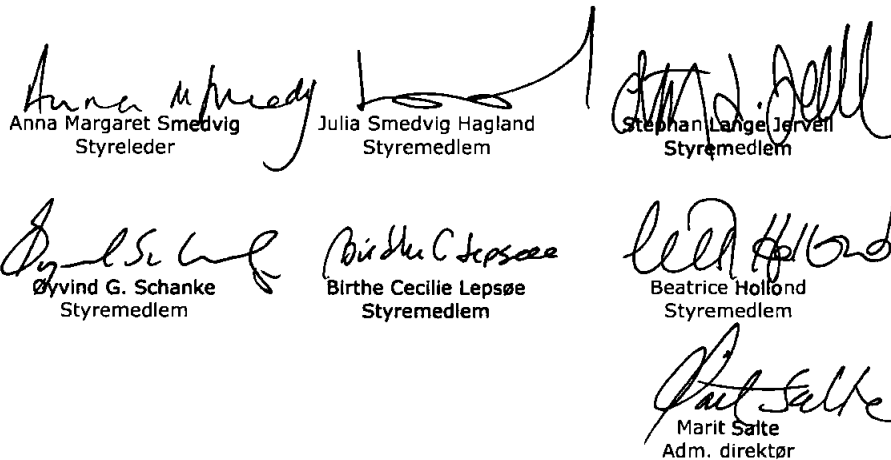 Anna Margaret Smedvig
Styreleder
Julia Smedvig Hagland
Styremedlem
Stephan Lange Jervell
Styremedlem
Øyvind G. Schanke
Styremedlem
Birthe Cecilie Lepsøe
Styremedlem
Beatrice Hollond
Styremedlem
Marit Salte
Adm. direktør